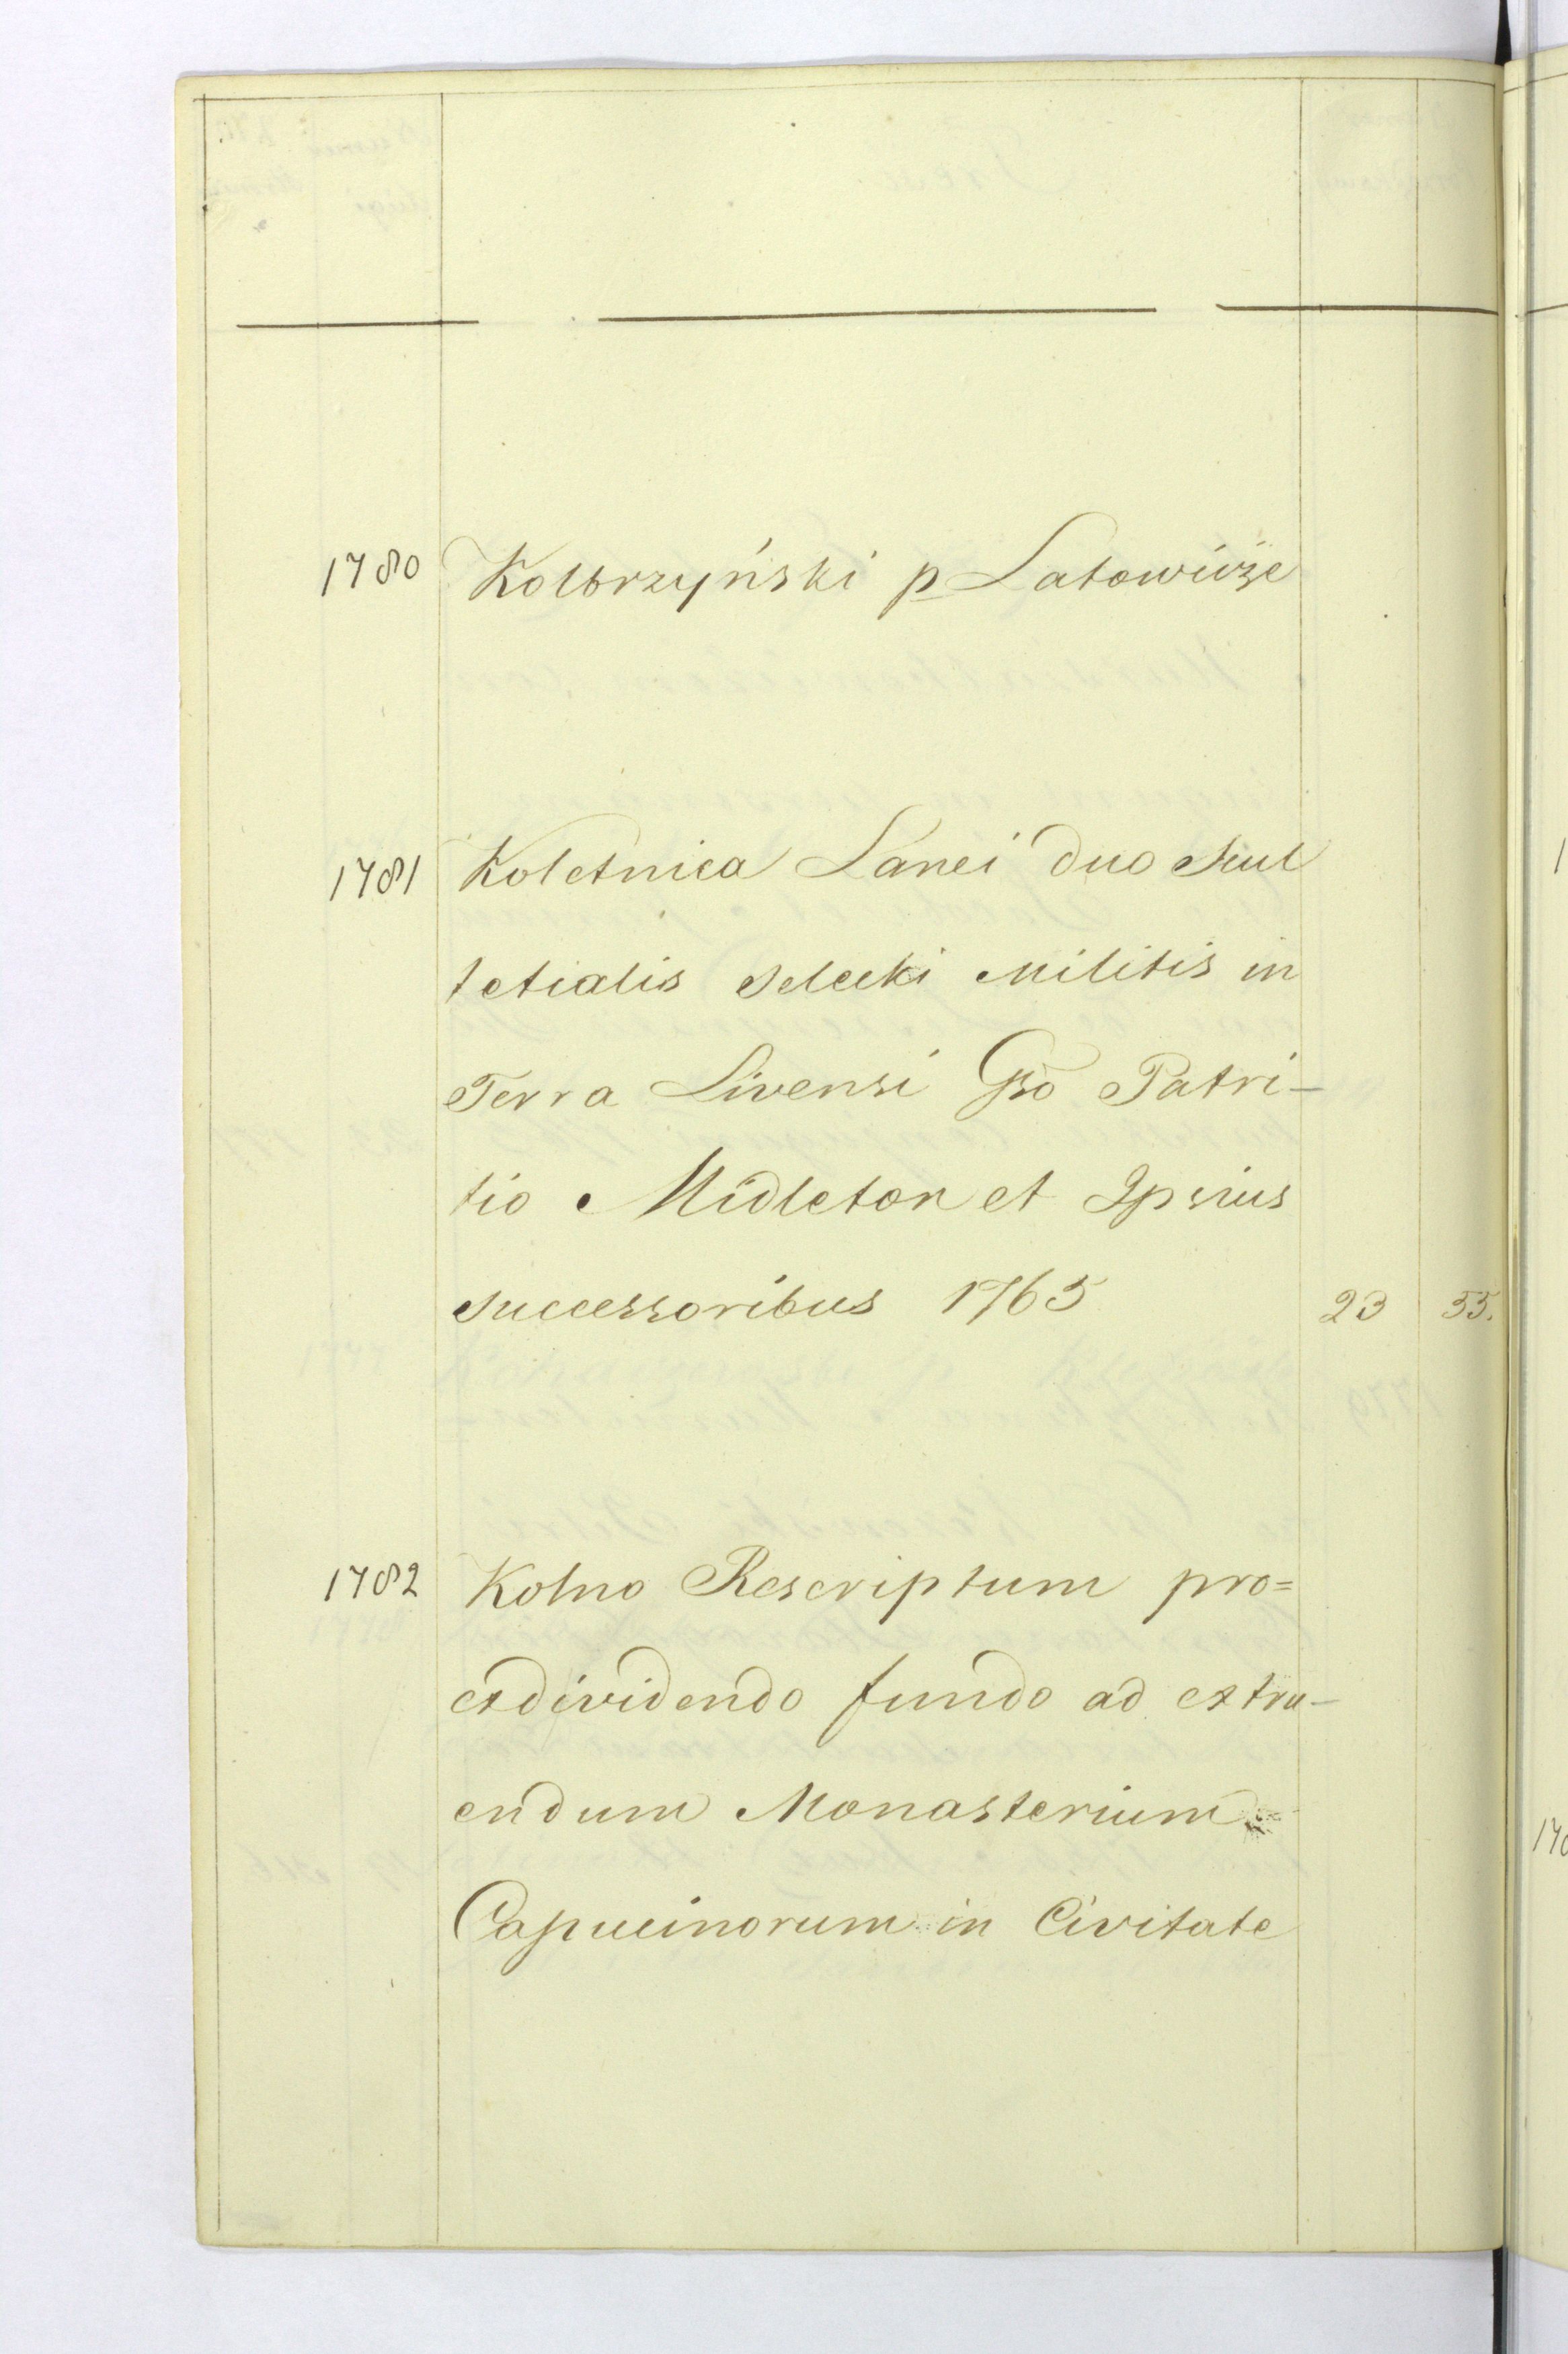 1780 Kolbrzyński p Latowicze
1781 Koletnica Lanei duo Scul
tetialis Selecki Militis in
Terra Livensi Gso Patri-
tio Midleton et Ipsius
Successoribus 1765 23 55.
1782 Kolno Rescriptum pro=
exdividendo fundo ad extru-
endum Monasterium
Capucinorum in Civitate